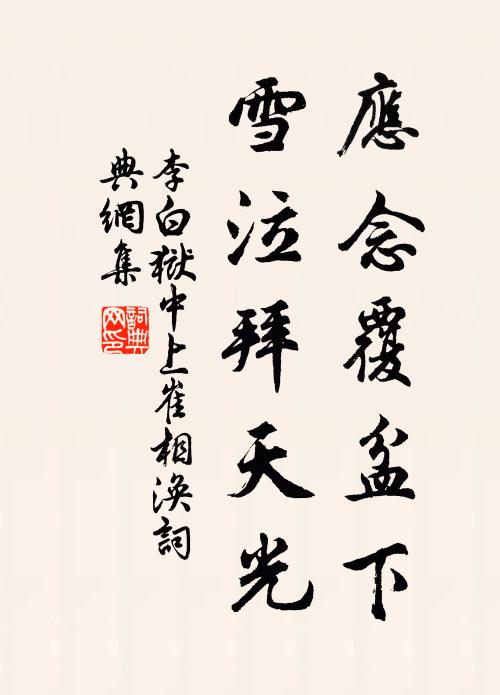 應念覆盆下
雪泣拜天光
李白獄中上崔相渙詞
典網集
詞典
网印